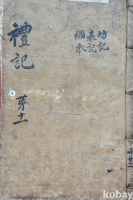 坊記
表記
緇衣
禮記
苐十一
kobay